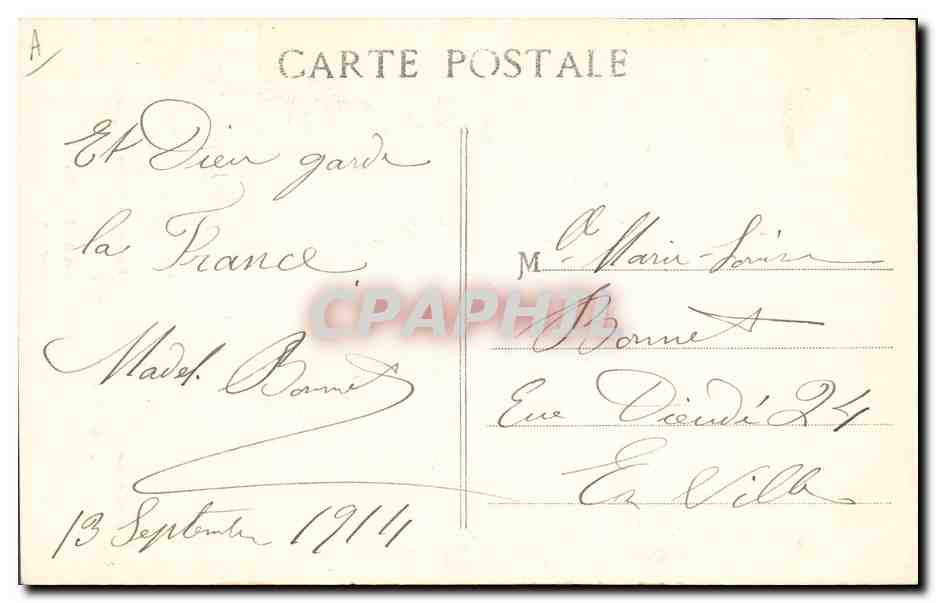 A
CARTE POSTALE
Et Dieu garde
la France.
Madel. Bonnet
13 Septembre 1914
Mlle Marie-Louise
Bonnet
Rue Dieudé 24
En Ville
CPAPHIL